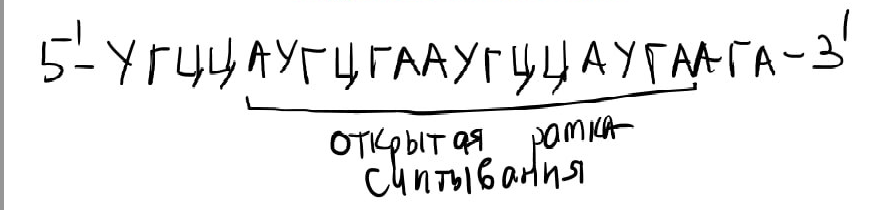 5'-УГЦЦАУГЦГААУГЦЦАУГААГА-3'
открытая рамка
считывания